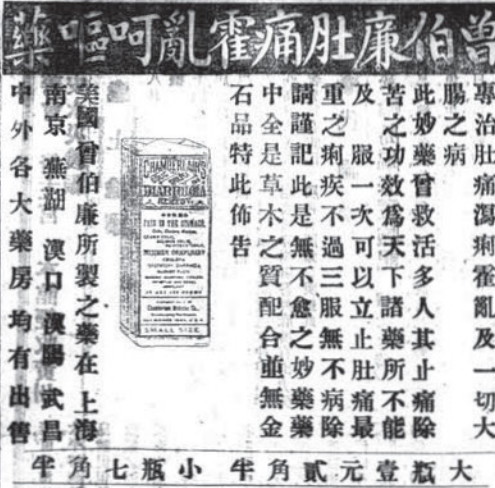 曾伯廉肚痛霍亂呵嘔藥
專治肚痛瀉痢霍亂及一切大
腸之病
此妙藥曾救活多人其止痛除
苦之功效爲天下諸藥所不能
及 服一次可以立止肚痛最
重之痢疾不過三服無不病除
請謹記此是無不愈之妙藥藥
中全是草木之質配合並無金
石品特此佈告
CHAMBERLAIN'S
DIARRHOEA
REMEDY
PAIN IN THE STOMACH
SMALL SIZE
美國曾伯廉所製之藥在 上海
南京 蕪湖 漢口 漢陽 武昌
中外各大藥房均有出售
大瓶壹元貳角半 小瓶七角半